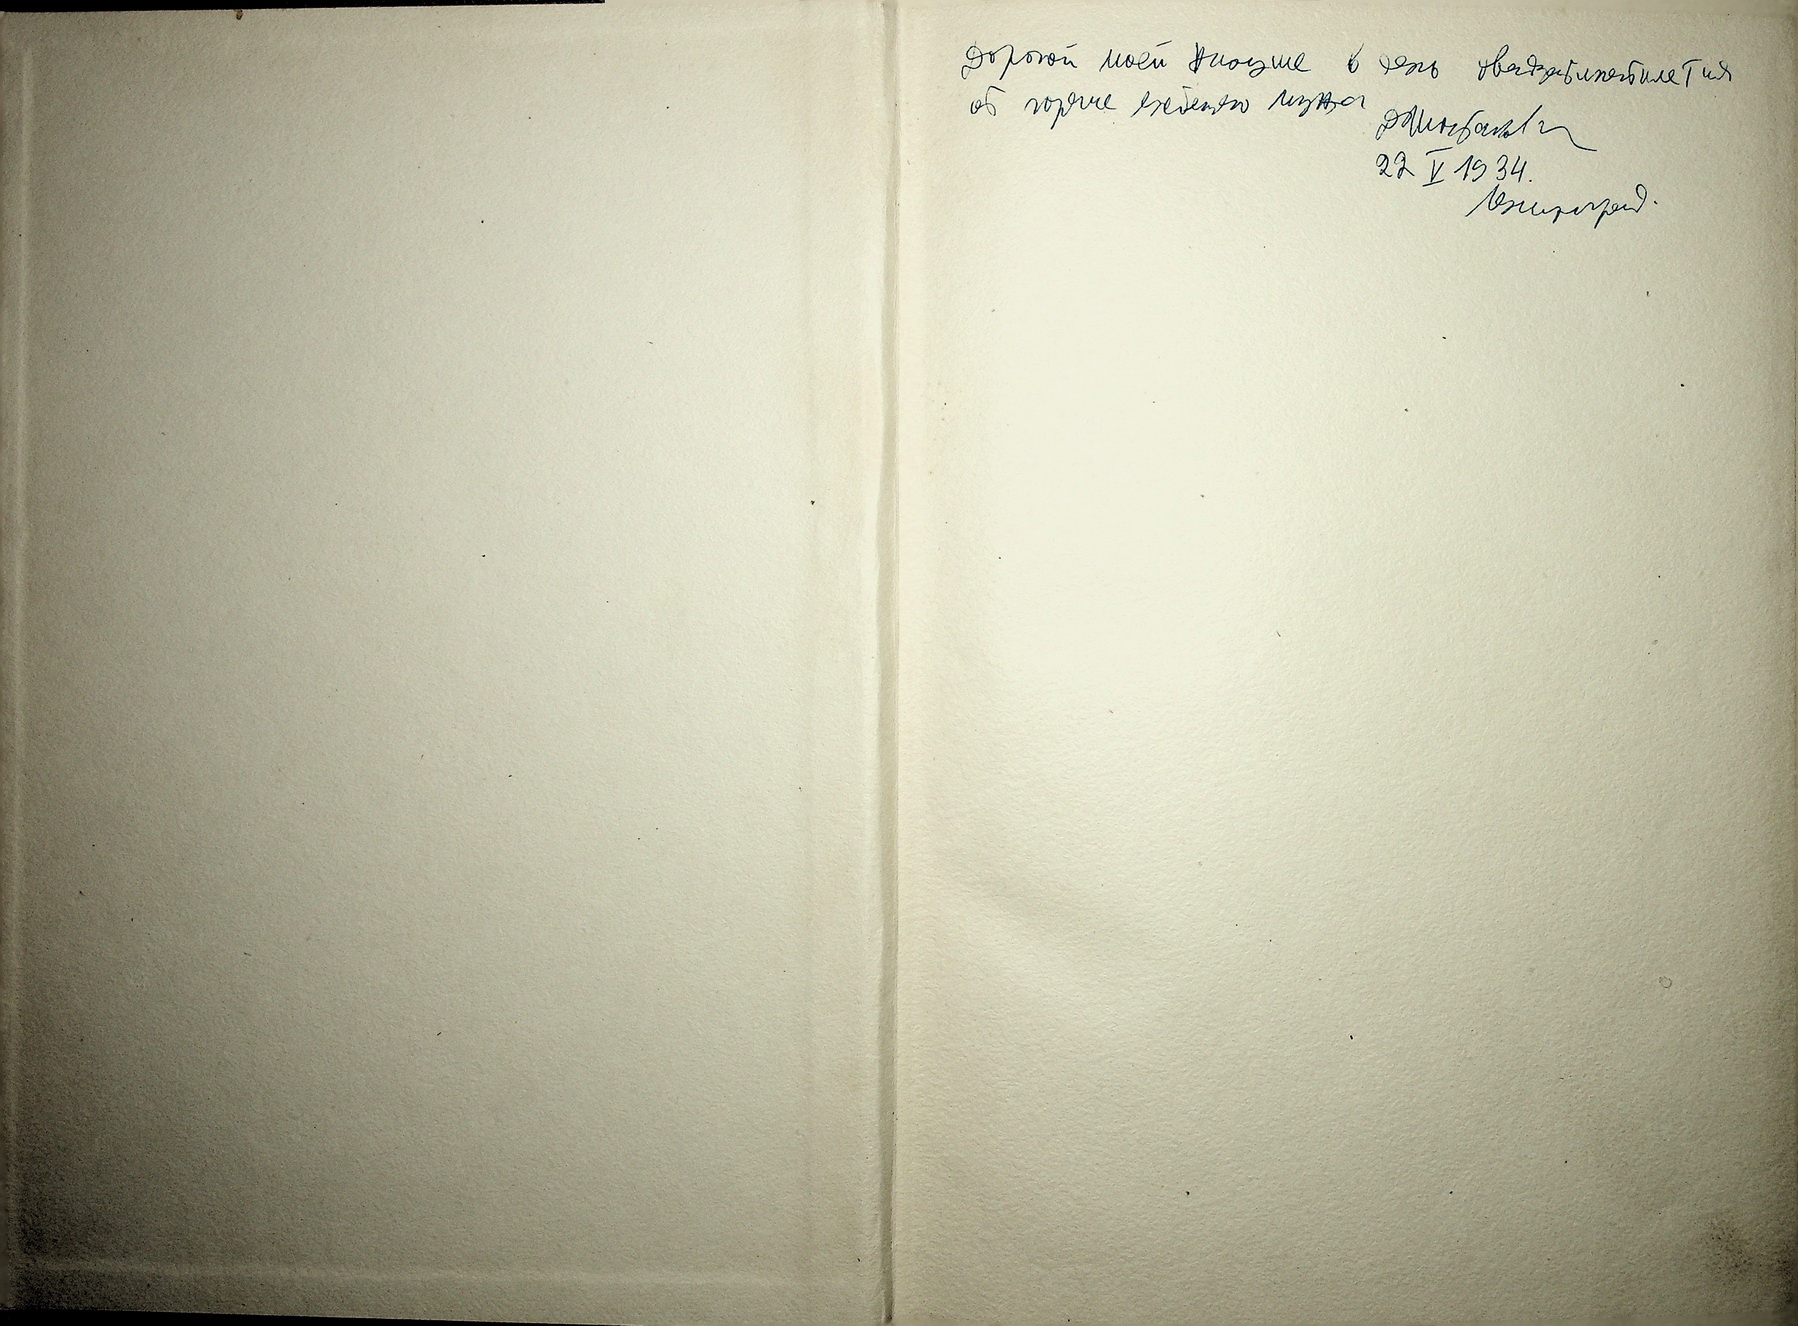 Дорогой моей Нинуше в день двадцатипятилетия
от горяче любящего мужа
ДШостакович
22 V 1934.
Ленинград.